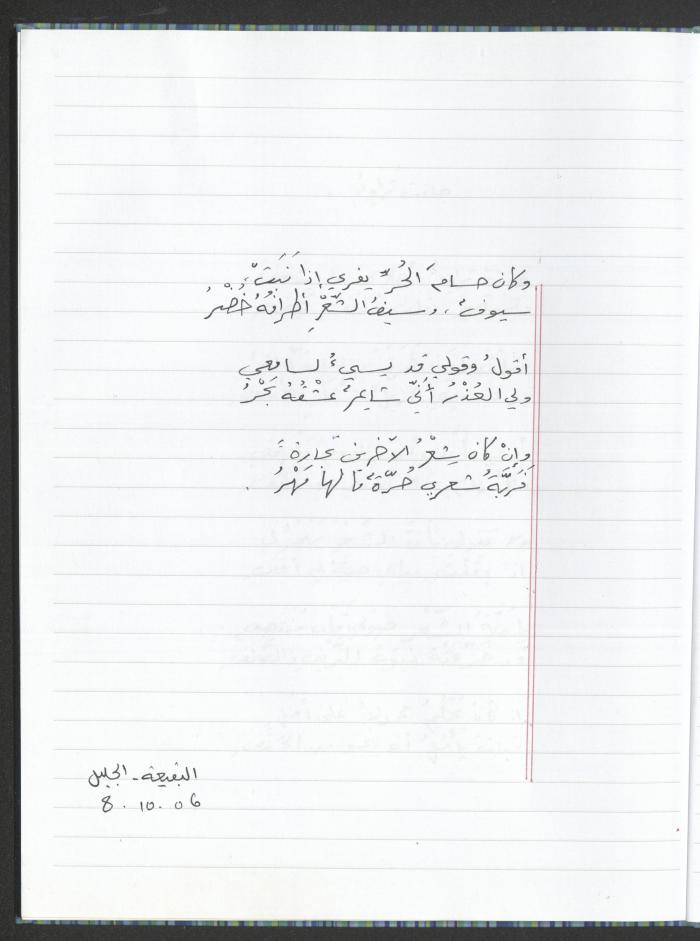 وكان حسام الحُرِّ يفري إذا نَبَتْ،
سيوفٌ، وسيفُ الشِّعْرِ أطرافُهُ خُضْرُ
أقولُ وقولي قد يسيءُ لسامعي
ولي العُذْرُ أَنّي شاعِرٌ عِشْقُهُ بَحْرُ
وإنْ كانَ شِعْرُ الآخرينَ تجارةً
فَرَبَّةُ شعري حُرّةٌ ما لها مَهْرُ.
البقيعة - الجليل
8.10.06